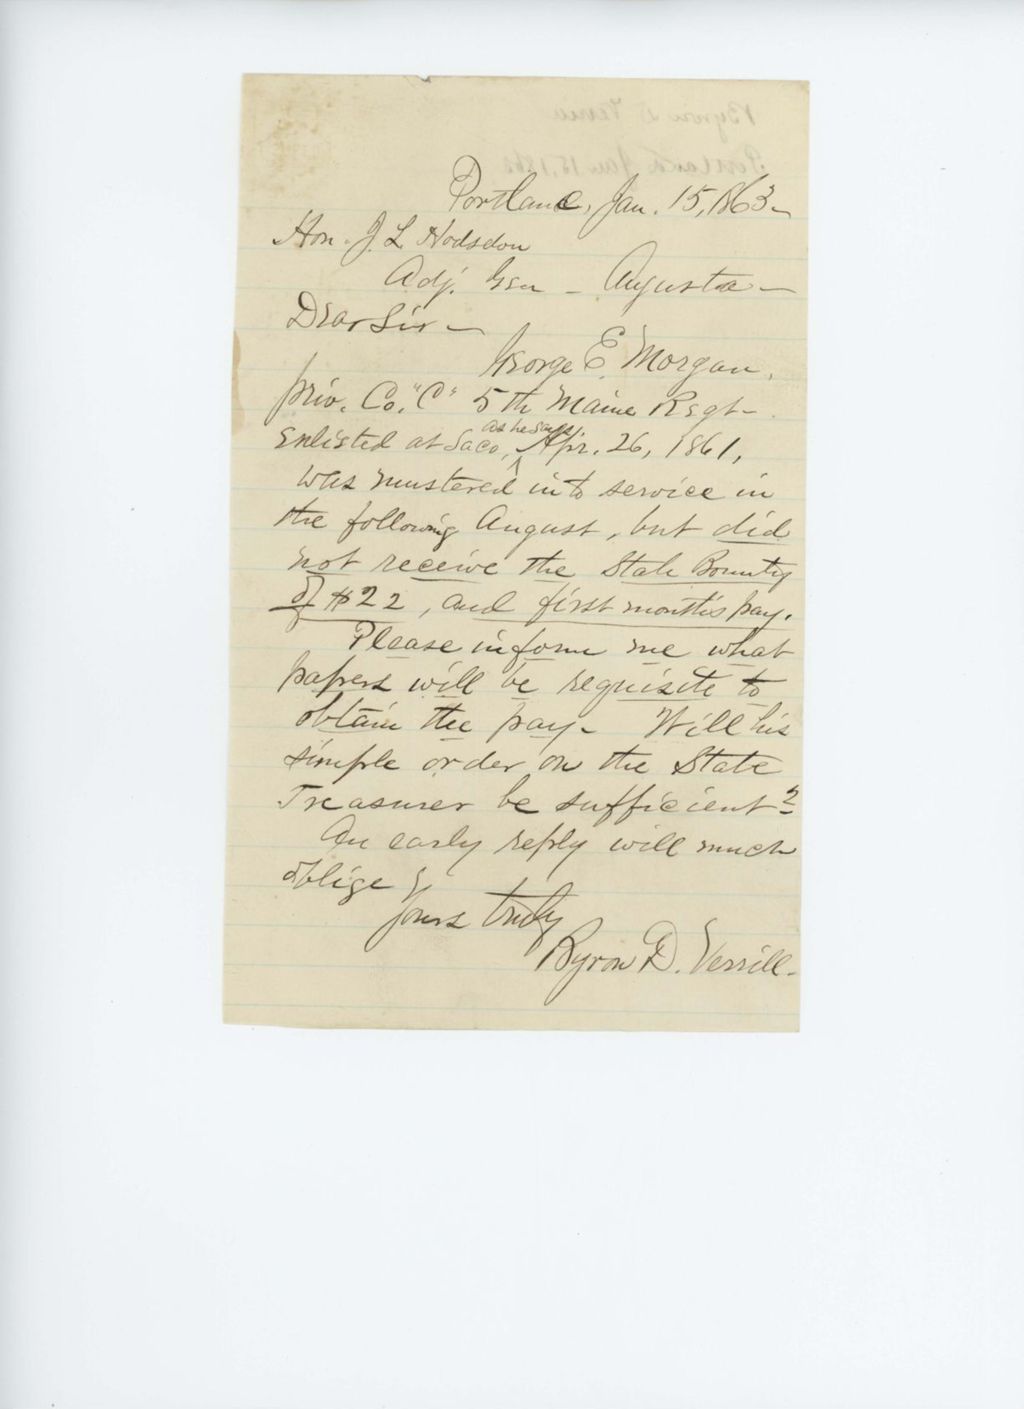 Portland, Jan. 15, 1863-
Hon. J. L Hodsdon
Adj. Gen - Augusta-
Dear Sir-
George E. Morgan,
priv. Co. "C" 5th Maine Regt-
Enlisted at Saco, as he says, Apr. 26, 1861,
was mustered into service in
the following August, but did
not receive the State Bounty
of $22, and first month's pay.
Please inform me what
papers will be requisite to
obtain the pay- Will his
simple order on the State
Treasurer be sufficient?
An early reply will much
oblige
Yours truly
Byron D. Verrill-